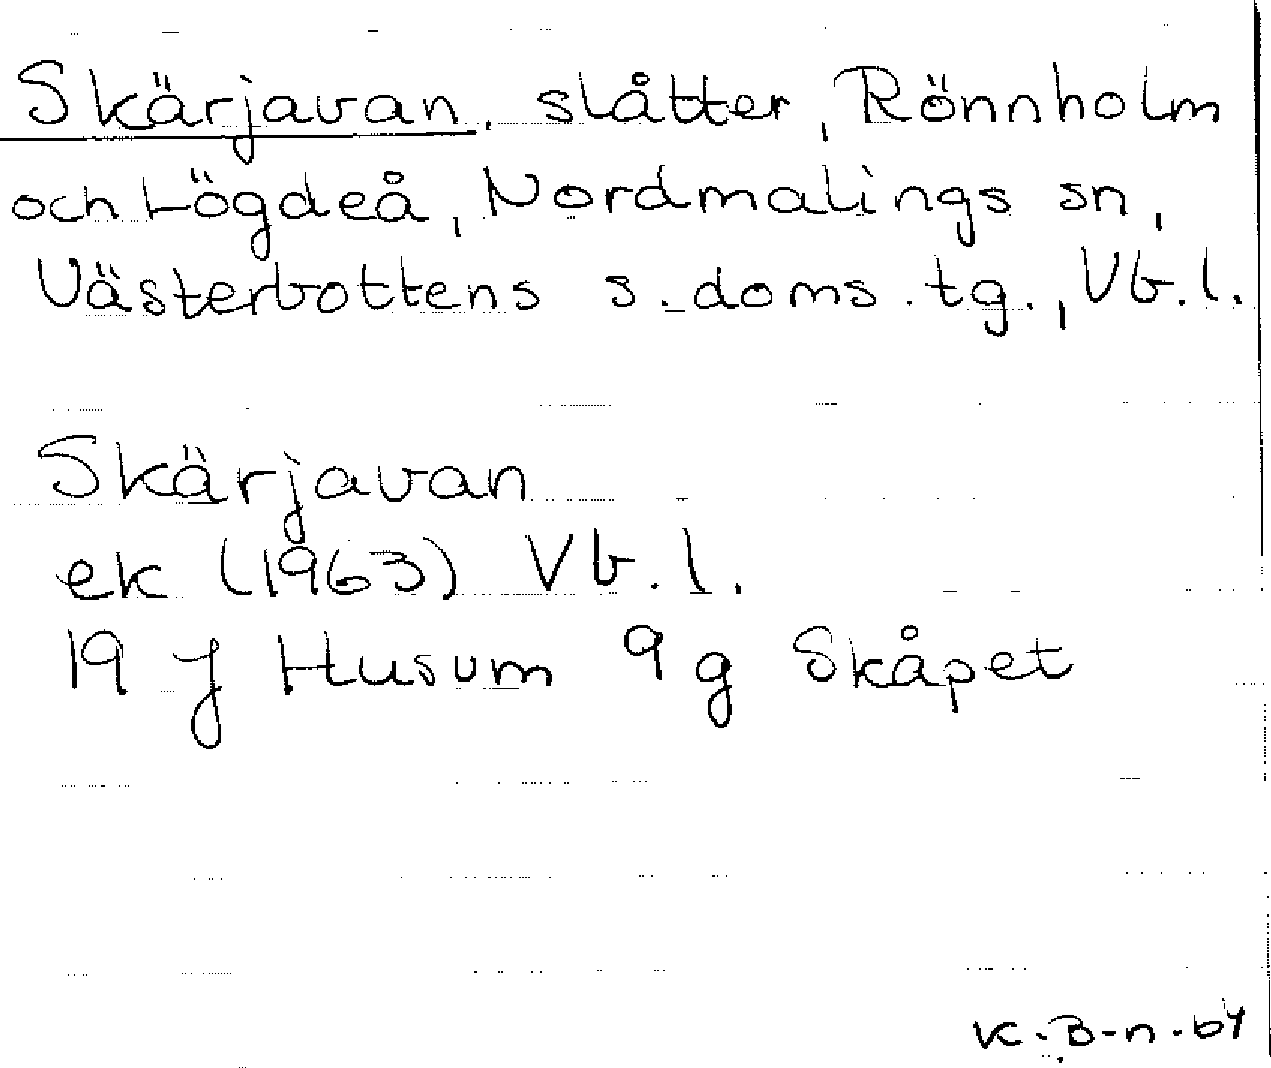 Skärjavan, slåtter, Rönnholm
och Lögdeå, Nordmalings sn,
Västerbottens s. doms. tg., Vb. l.
Skärjavan
ek (1963) Vb. l.
19 J Husum 9 g Skåpet